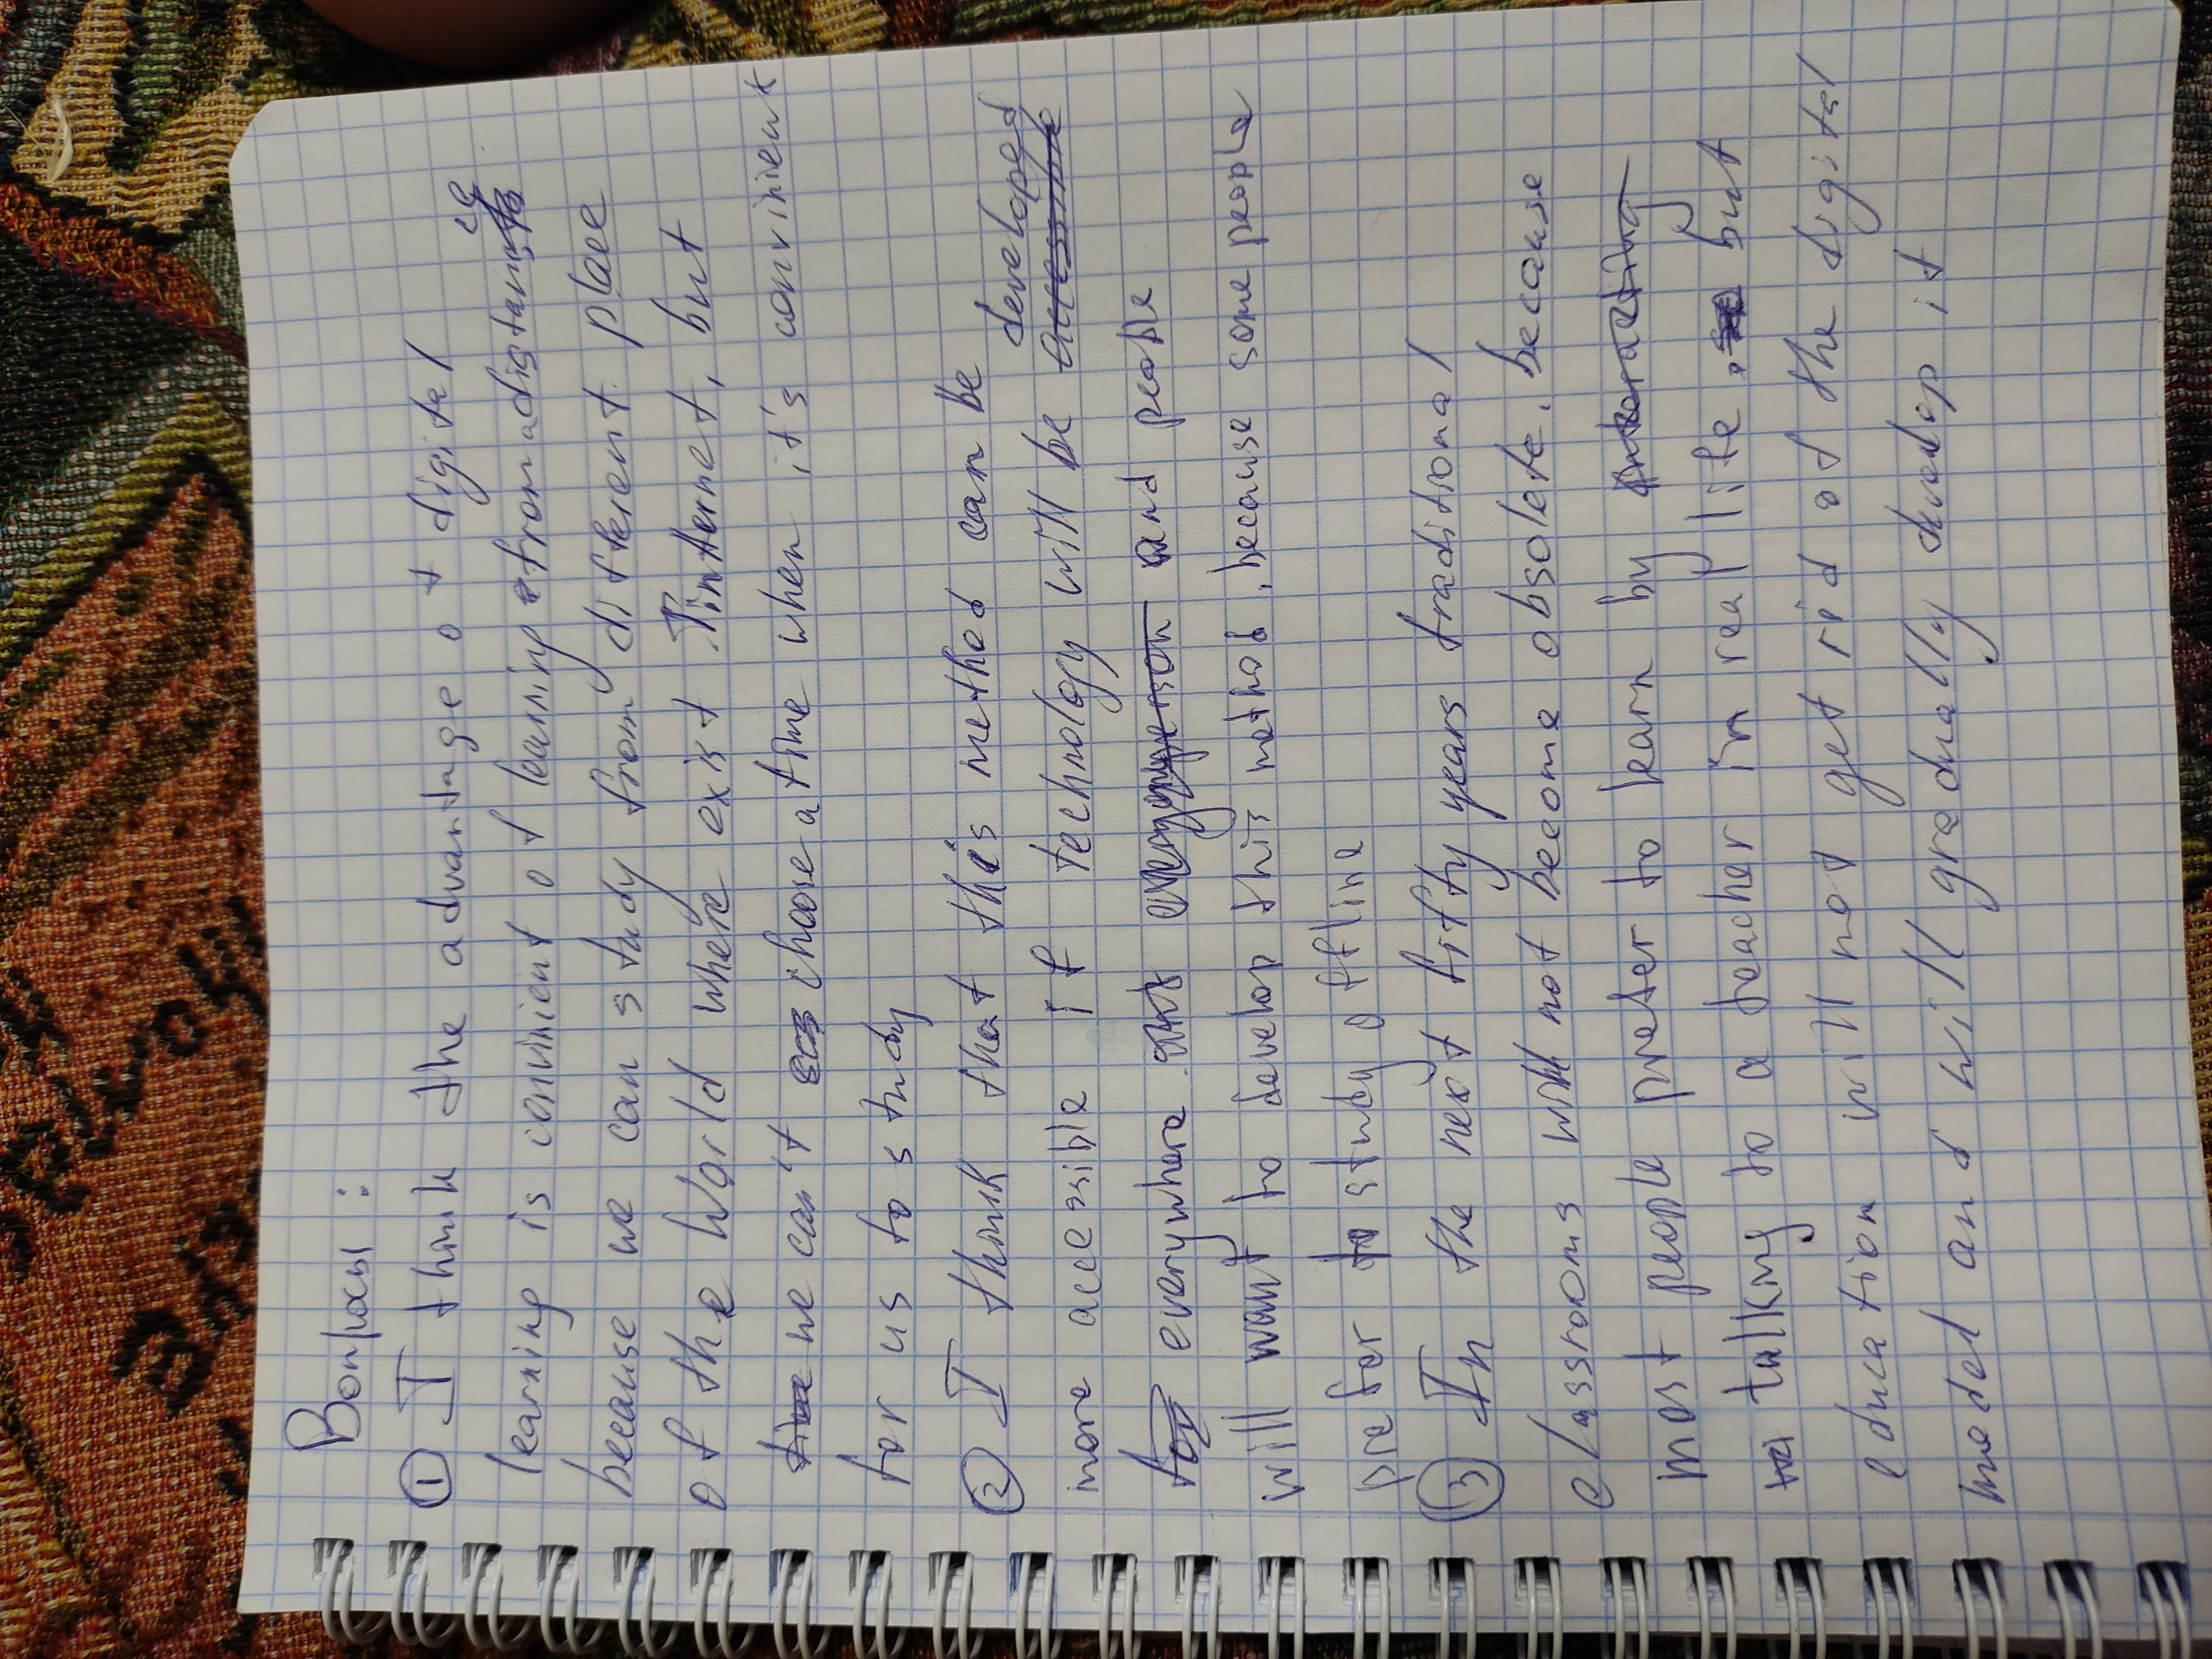 Вопросы:
① I think the advantage of digital
learning is convinient of learning from a distance
because we can study from different place
of the World where exist Tinternet, but
we can't choose a time when it's convinient
for us to study
② I think that this method can be developed
more accessible if technology will be
everywhere and people
will want to develop this method, because some people
prefer to study offline
③ In the next fifty years traditional
classrooms will not become obsolete, because
most people prefer to learn by
talking to a teacher in real life, but
education will not get rid of the digital
model and will gradually develop it